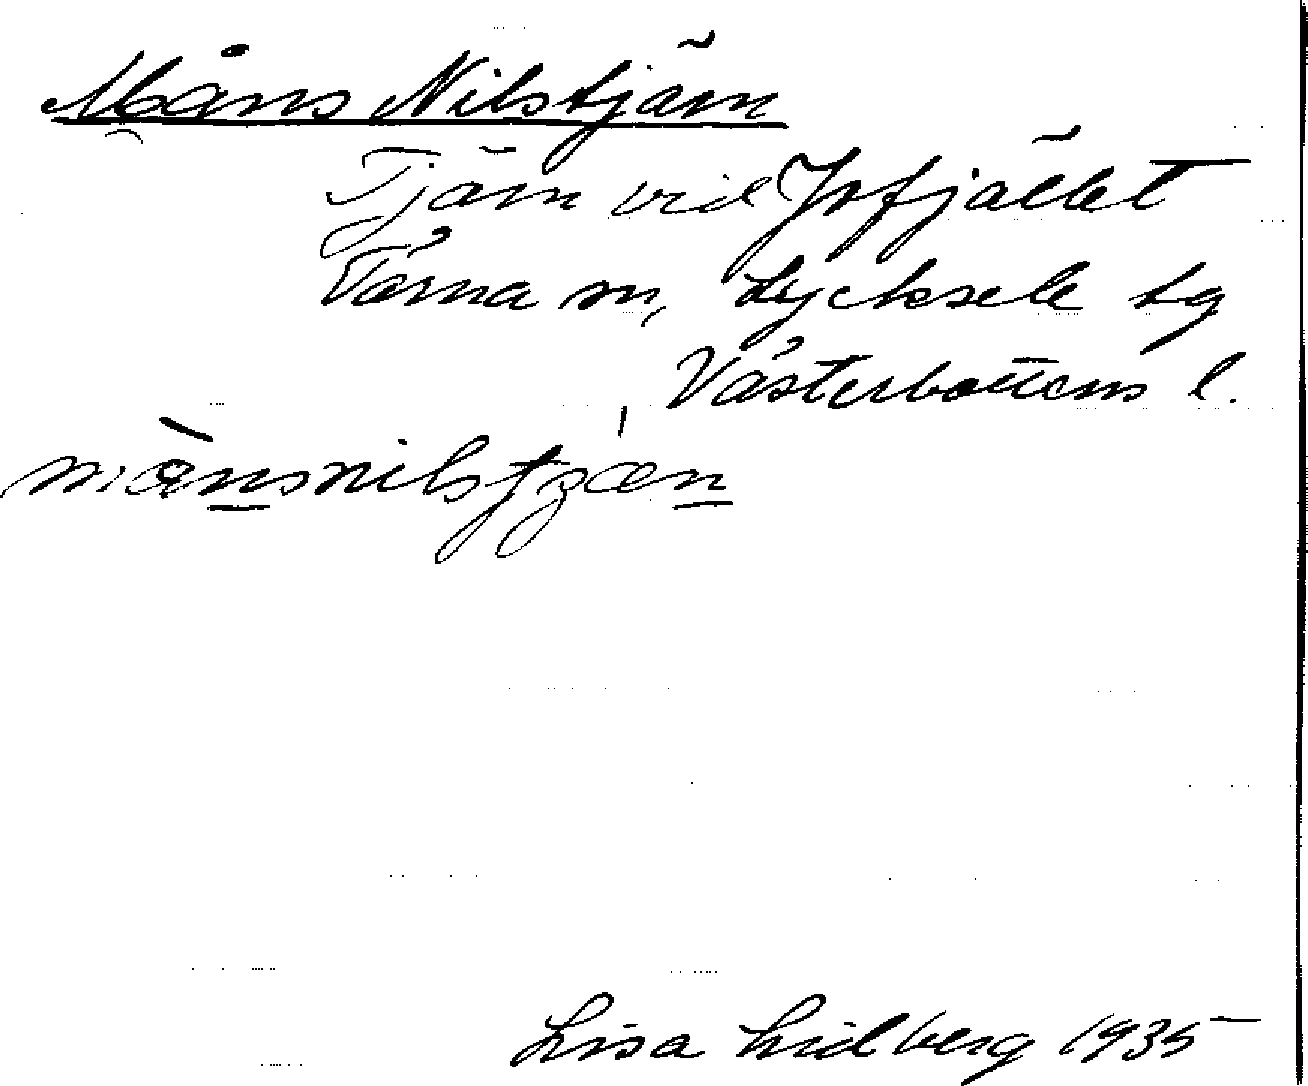 Måns Nilstjärn
Tjärn vid Yrfjället
Tärna sn, Lycksele lg
Västerbottens l.
månsnilstjæn
Lisa Lidberg 1935